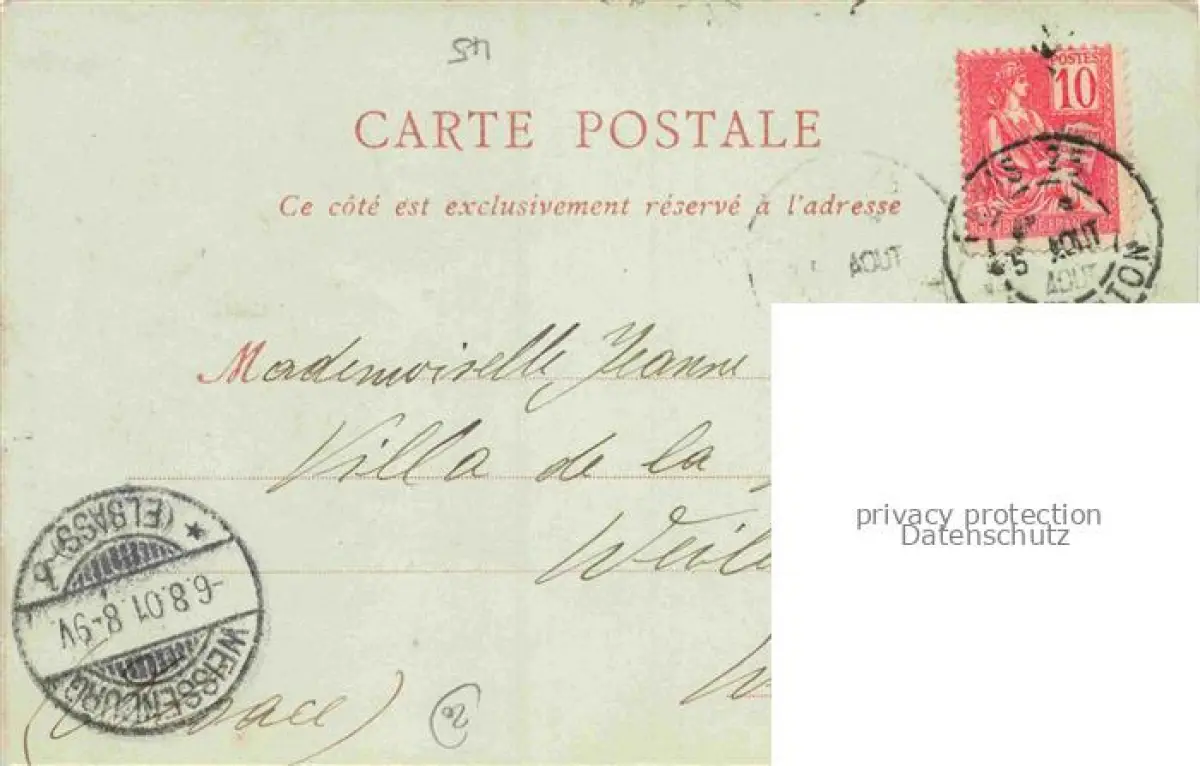 45
CARTE POSTALE
Ce côté est exclusivement réservé à l'adresse
POSTES
10
AOUT
5 AOUT
AOUT
Mademoiselle Jeanne
Villa de la
privacy protection
Datenschutz
WEISSENBURG
(ELSASS)
-6.8.01.8-9V.
(Alsace)
20